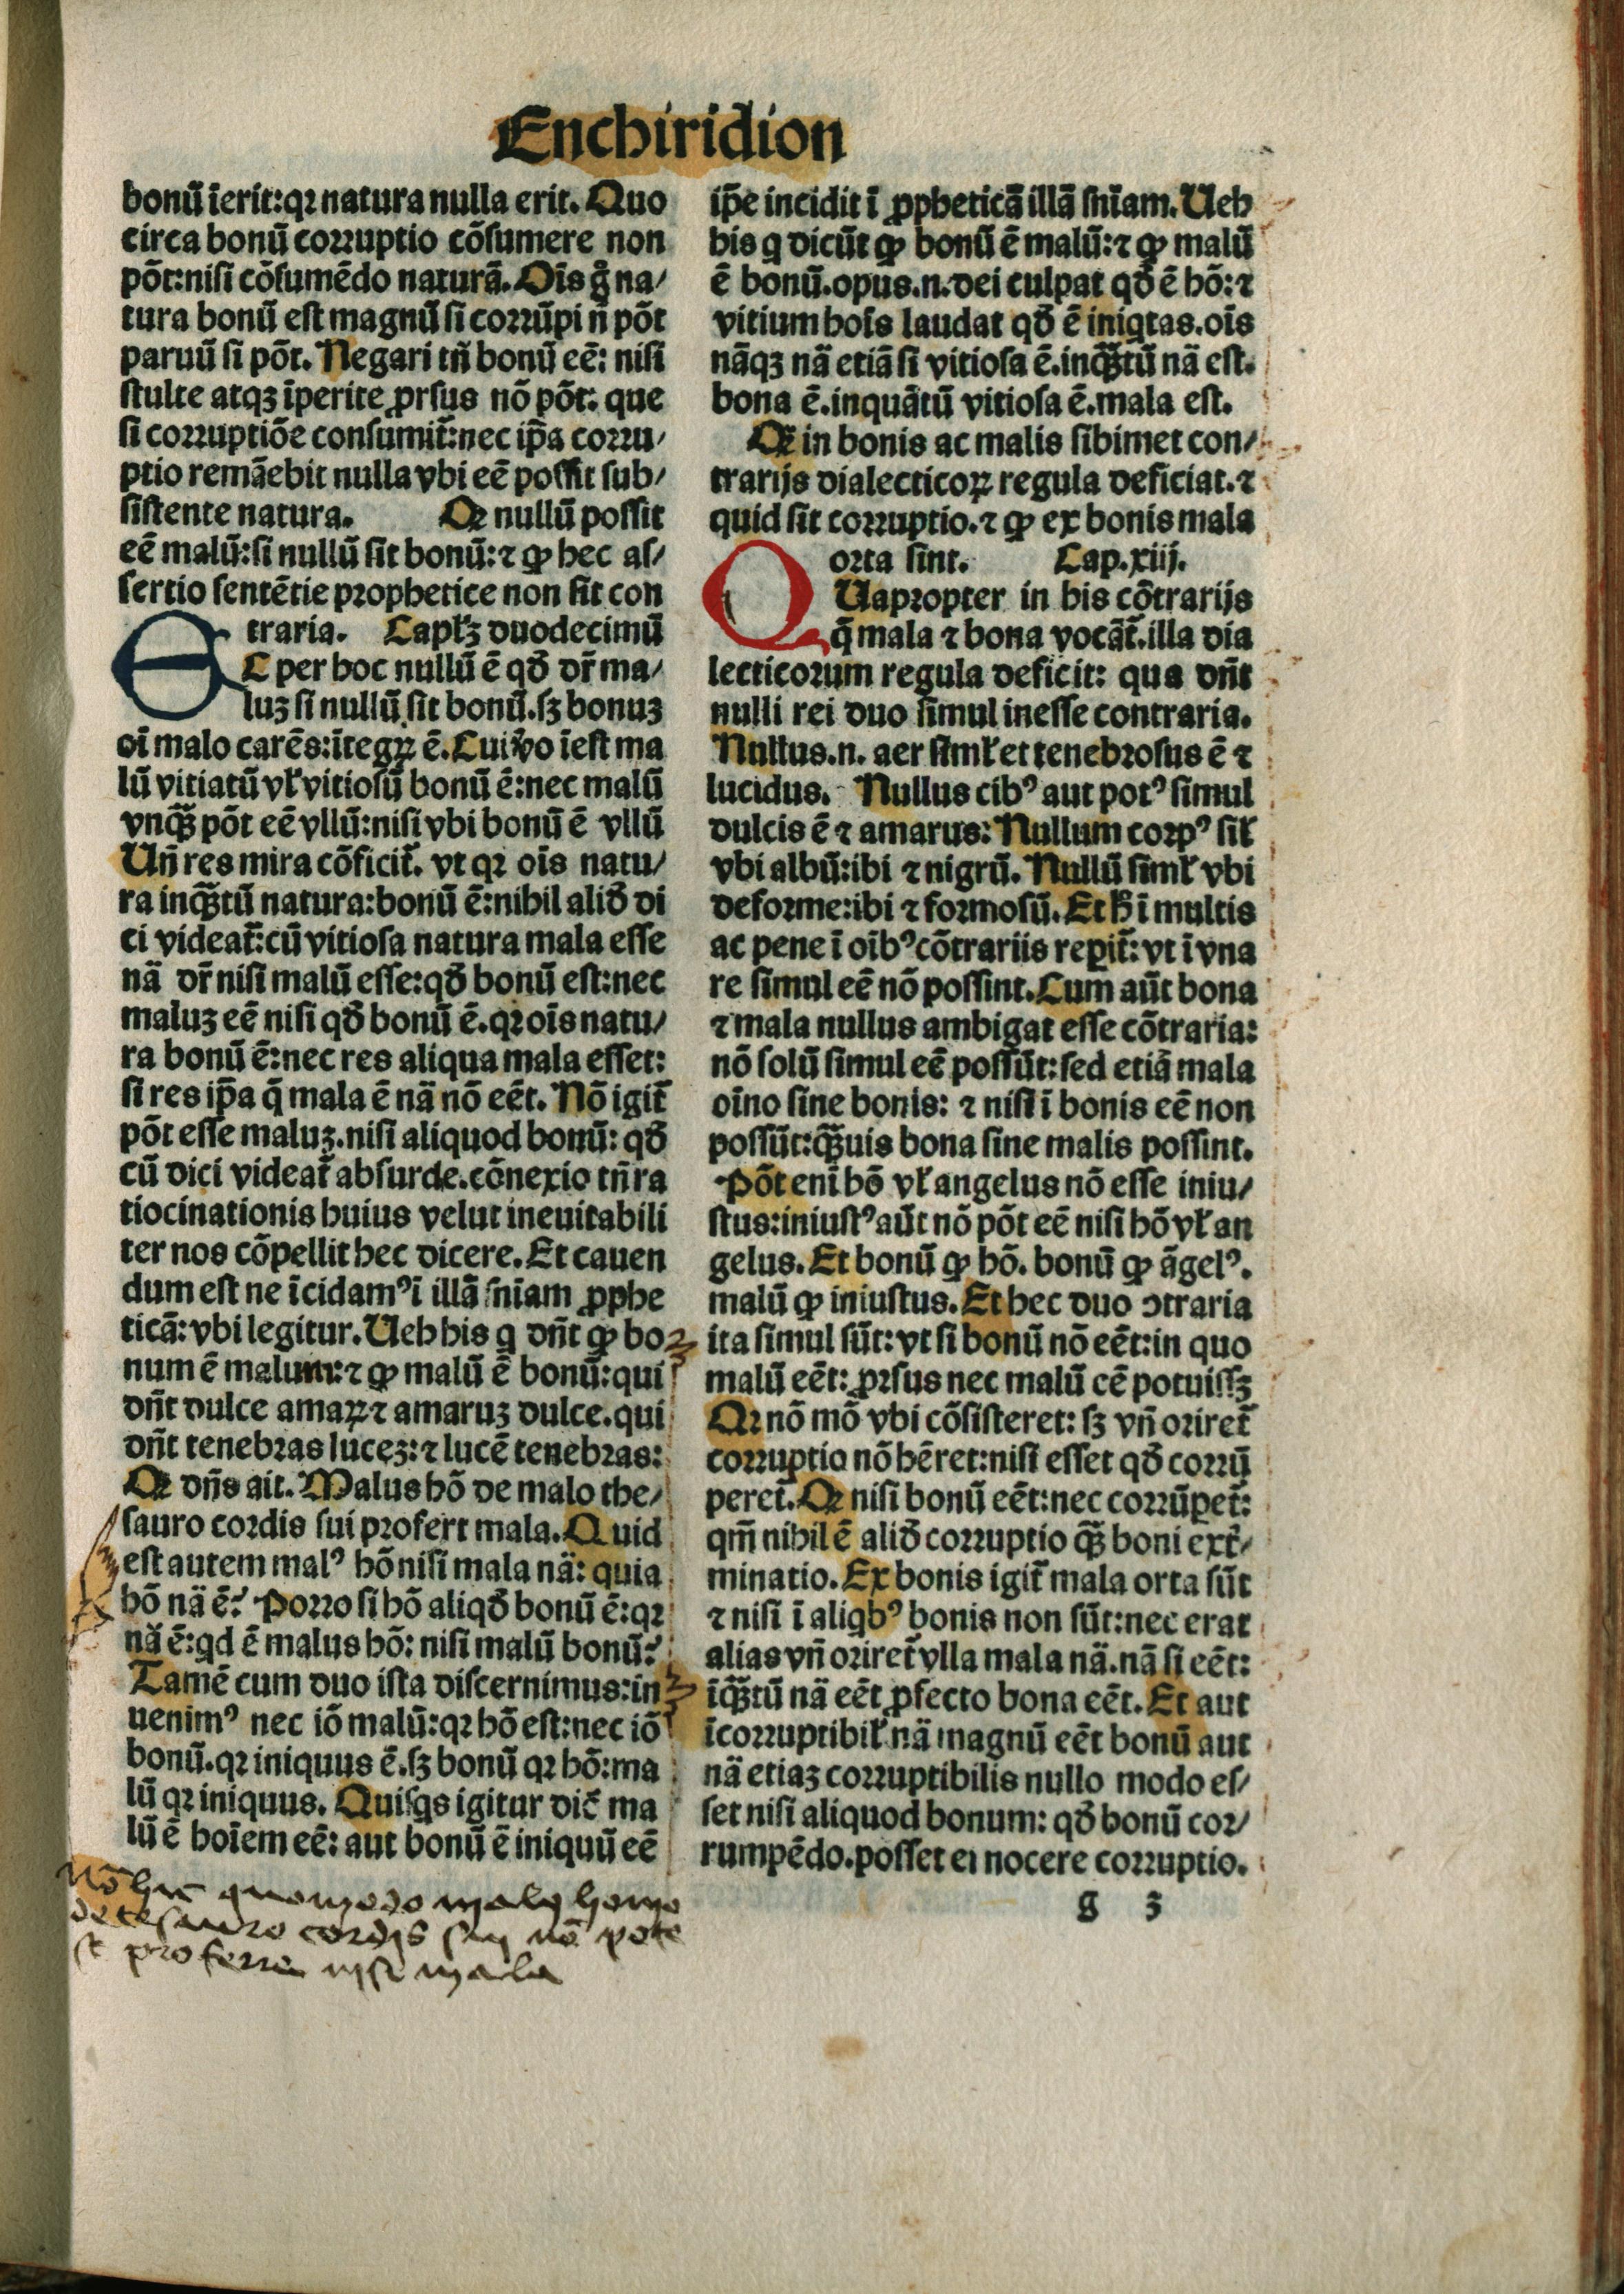 Enchiridion
bonū īerit:qꝛ natura nulla erit. Quo
circa bonū corruptio cōsumere non
pōt:nisi cōsumēdo naturā. Oīs gͦ na/
tura bonū est magnū si corrūpi n̄ pōt
paruū si pōt. Negari tn̄ bonū eē: nisi
stulte atqꝫ īperite ꝓrsus nō pōt. que
si corruptiōe consumit̄:nec ip̄a corru/
ptio remāebit nulla vbi eē possit sub/
sistente natura. Qꝛ nullū possit
eē malū:si nullū sit bonū:⁊ ꝙ hec as/
sertio sentētie prophetice non sit con
traria. Capłꝫ duodecimū
EC per hoc nullū ē qđ dr̄ ma/
luꝫ si nullū sit bonū.sꝫ bonuꝫ
oī malo carēs:ītegꝝ ē. Cui ṽo īest ma
lū vitiatū vł vitiosū bonū ē:nec malū
vnqᷓꝫ pōt eē vllū:nisi vbi bonū ē vllū
Vn̄ res mira cōficit̄. vt qꝛ oīs natu/
ra inqᷓꝫtū natura:bonū ē:nihil aliđ di
ci videat̄:cū vitiosa natura mala esse
nā dr̄ nisi malū esse:qđ bonū est:nec
maluꝫ eē nisi qđ bonū ē.qꝛ oīs natu/
ra bonū ē:nec res aliqua mala esset:
si res ip̄a q̄ mala ē nā nō eēt. Nō igit̄
pōt esse maluꝫ.nisi aliquod bonū: qđ
cū dici videat̄ absurde.cōnexio tn̄ ra
tiocinationis huius velut ineuitabili
ter nos cōpellit hec dicere. Et cauen
dum est ne īcidamꝰ ī illā sn̄iam ꝓphe
ticā:vbi legitur. Ueh his q dn̄t ꝙ bo
num ē malum:⁊ ꝙ malū ē bonū:qui
dn̄t dulce amaꝝ ⁊ amaruꝫ dulce.qui
dn̄t tenebras luceꝫ:⁊ lucē tenebras:
Qꝛ dn̄s ait. Malus hō de malo the/
sauro cordis sui profert mala. Quid
est autem malꝰ hō nisi mala nā: quia
hō nā ē? Porro si hō aliqđ bonū ē:qꝛ
nā ē:qd ē malus hō: nisi malū bonū?
Tamē cum duo ista discernimus:in
uenimꝰ nec iō malū:qꝛ hō est:nec iō
bonū.qꝛ iniquus ē.sꝫ bonū qꝛ hō:ma
lū qꝛ iniquus. Quisqs igitur dic̄ ma
lū ē hoīem eē: aut bonū ē iniquū eē
nō hic quomodo malꝰ homo
de tesauro cordis sui nō pote
st proferre nisi mala
ip̄e incidit ī ꝓpheticā illā sn̄iam. Ueh
his q dicūt ꝙ bonū ē malū:⁊ ꝙ malū
ē bonū.opus.n.dei culpat qđ ē hō:⁊
vitium hoīs laudat qđ ē iniqtas.oīs
nāqꝫ nā etiā si vitiosa ē.inqᷓꝫtū nā est.
bona ē.inquātū vitiosa ē.mala est.
Qꝛ in bonis ac malis sibimet con/
trarijs dialecticoꝝ regula deficiat.⁊
quid sit corruptio.⁊ ꝙ ex bonis mala
orta sint. Cap.xiij.
QUapropter in his cōtrarijs
q̄ mala ⁊ bona vocāt̄.illa dia
lecticorum regula deficit: qua dn̄t
nulli rei duo simul inesse contraria.
Nullus.n. aer simł et tenebrosus ē ⁊
lucidus. Nullus cibꝰ aut potꝰ simul
dulcis ē ⁊ amarus: Nullum corpꝰ sił
vbi albū:ibi ⁊ nigrū. Nullū simł vbi
deforme:ibi ⁊ formosū. Et ħ ī multis
ac pene ī oībꝰ cōtrariis reꝑit̄: vt ī vna
re simul eē nō possint. Cum aūt bona
⁊ mala nullus ambigat esse cōtraria:
nō solū simul eē possūt:sed etiā mala
oīno sine bonis: ⁊ nisi ī bonis eē non
possūt:qᷓꝫuis bona sine malis possint.
Pōt enī hō vł angelus nō esse iniu/
stus:iniustꝰ aūt nō pōt eē nisi hō vł an
gelus. Et bonū ꝙ hō. bonū ꝙ āgelꝰ.
malū ꝙ iniustus. Et hec duo ɔtraria
ita simul sūt:vt si bonū nō eēt:in quo
malū eēt:ꝓrsus nec malū eē potuissꝫ
Qꝛ nō mō vbi cōsisteret: sꝫ vn̄ oriret̄
corruptio nō hēret:nisi esset qđ corrū
peret̄. Qꝛ nisi bonū eēt:nec corrūꝑet̄:
qm̄ nihil ē aliđ corruptio qᷓꝫ boni ext̄/
minatio. Ex bonis igit̄ mala orta sūt
⁊ nisi ī aliqbꝰ bonis non sūt:nec erat
alias vn̄ oriret̄ vlla mala nā.nā si eēt:
īqᷓꝫtū nā eēt ꝓfecto bona eēt. Et aut
īcorruptibił nā magnū eēt bonū aut
nā etiaꝫ corruptibilis nullo modo es/
set nisi aliquod bonum: qđ bonū cor/
rumpēdo.posset ei nocere corruptio.
g 3